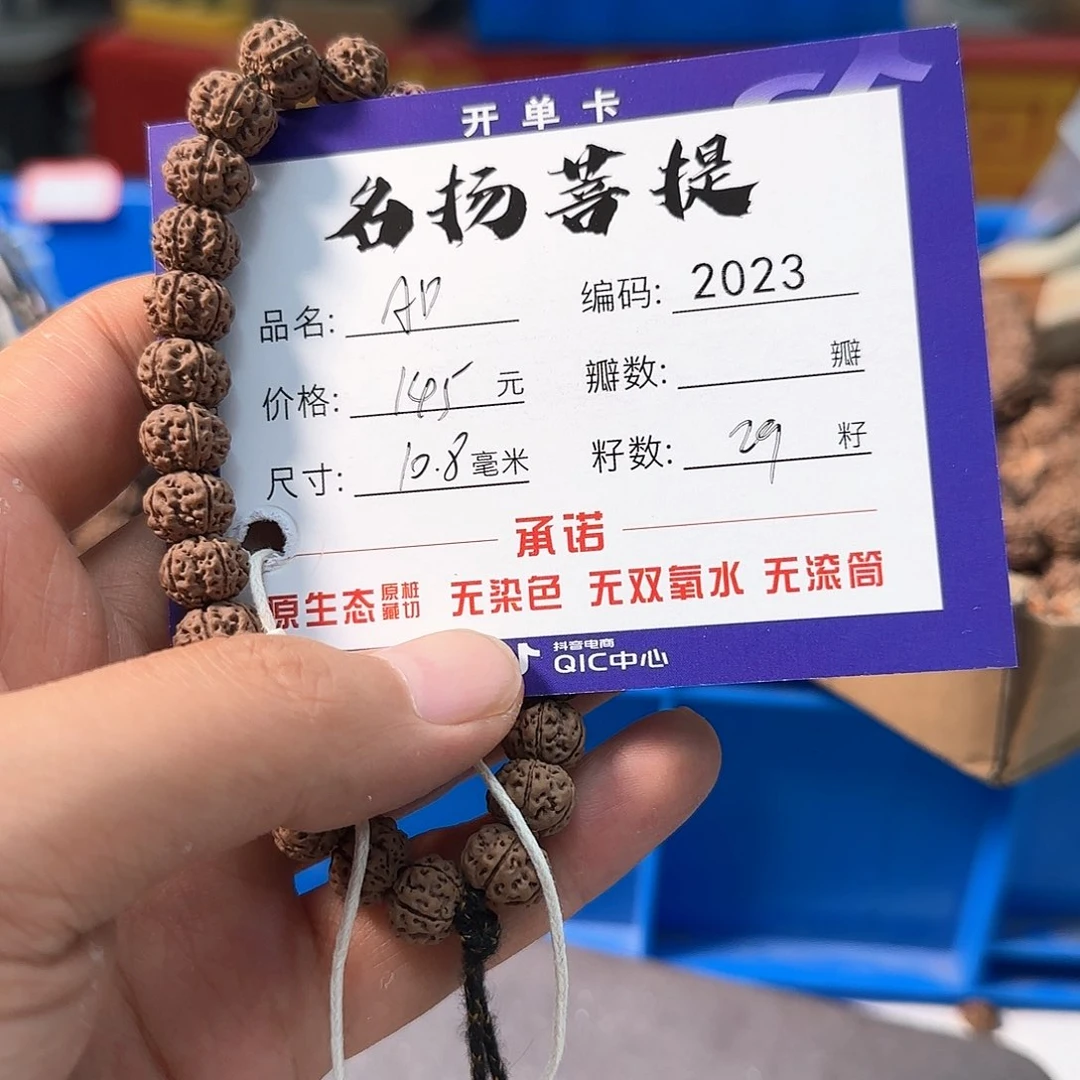 开单卡
名扬菩提
品名: AD 编码: 2023
价格: 145 元 瓣数: 瓣
尺寸: 10.8 毫米 籽数: 29 籽
承诺
原生态 原桩藏切 无染色 无双氧水 无滚筒
抖音电商
QIC中心